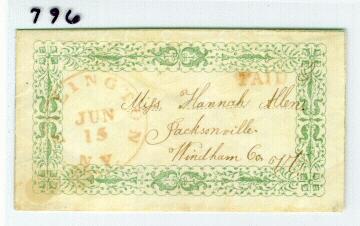 796
LINGTON
PAID
JUN
15
N.Y.
Miss Hannah Allen
Jacksonville
Windham Co.